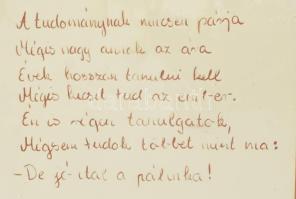 A tudománynak nincsen párja
Mégis nagy annak az ára
Évek hosszan tanulni kell
Mégis kicsit tud az em-er.
Én is régen tanulgatok,
Mégsem tudok többet mint ma:
- De jó ital a pálinka!